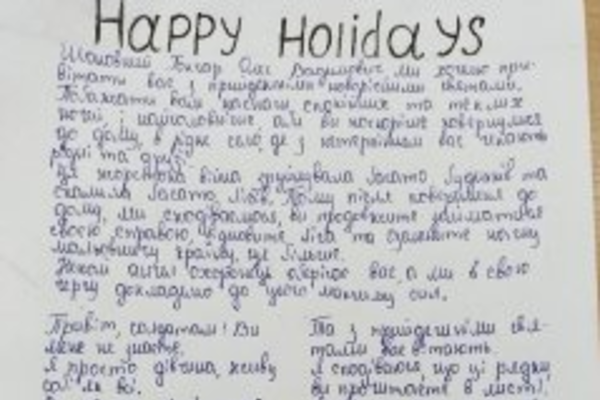 HAPPY HOlidAYS
Шановний Олег Вадимович ми хочемо при-
вітати вас з прийдешніми новорічними святами.
Побажати вам якомога спокійніше та теплих
ночей, і найголовніше аби ви скоріше повернулися
до дому, в рідне село, де з нетерпінням вас чекають
рідні та друзі.
Ця жорстока війна зруйнувала багато будинків та
спалила багато лісів. Тому після повернення до
дому, ми сподіваємося, ви продовжите займатися
своєю справою, відновите ліса та зробите нашу
мальовничу країну, ще більше.
Нехай ангел охоронець оберігає вас, а ми в свою
чергу докладемо до цього максимум сил.
Привіт, солдатам! Ви
мене не знаєте.
Я просто дівчина, живу
Та з прийдешніми свя-
тами вас вітають.
Я сподіваюся, що ці рядки
ви прочитаєте в листі,